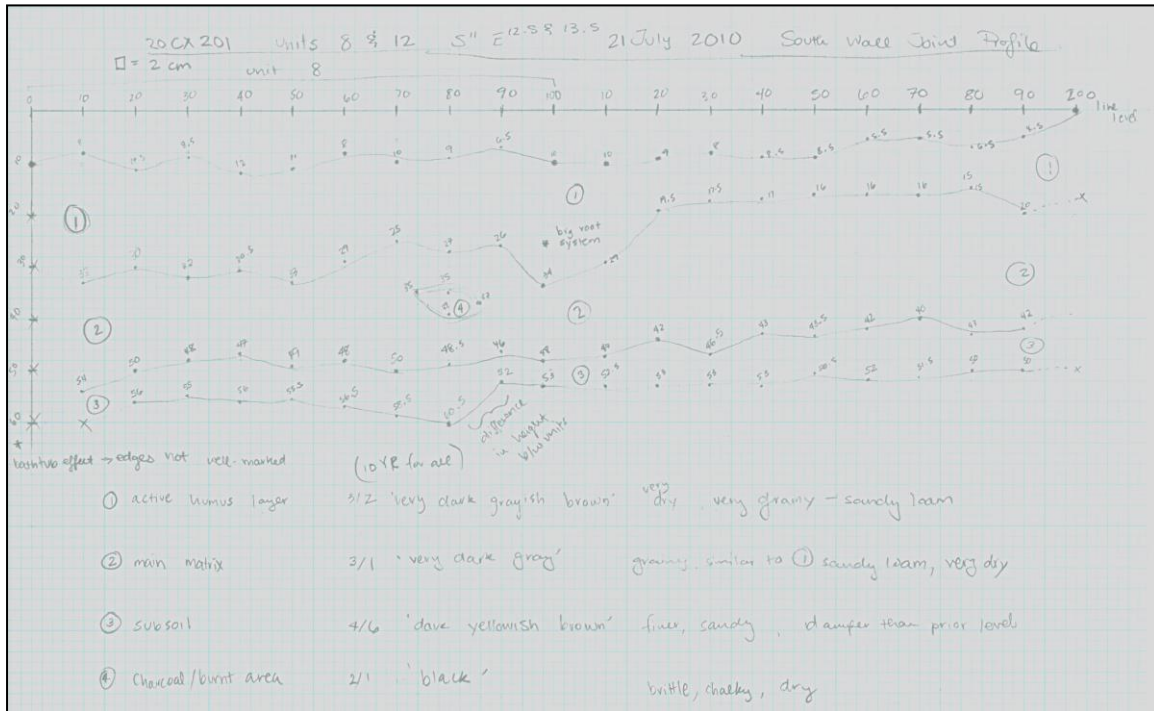 20CX201 units 8 & 12 S11 E12.5 & 13.5 21 July 2010 South Wall Joint Profile
□ = 2 cm unit 8
0 10 20 30 40 50 60 70 80 90 100 10 20 30 40 50 60 70 80 90 200 line level
8 8.5 13 8 10 9 6.5 10 9 8 8.5 8.5 5.5 5.5 6.5
10
① ① ①
17.5 17 16 16 16 15
20 20
25 26 29
30
big root system
29
34
35 35 ④
②
40 ② ②
50 48 49 48 50 48.5 46 48 42 46.5 43 43.5 42 40 43 42
54 ③
50 52 53 52.5 53 53 53 50.5 52 50
56 55 56 55.5 56.5 58.5 60.5
③ ③
60
difference in height b/w units
* bathtub effect → edges not well-marked (10 YR for all)
① active humus layer 3/2 'very dark grayish brown' very dry, very grainy - sandy loam
② main matrix 3/1 'very dark gray' grainy, similar to ① sandy loam, very dry
③ subsoil 4/6 'dark yellowish brown' finer, sandy, damper than prior levels
④ Charcoal/burnt area 2/1 'black' brittle, chalky, dry